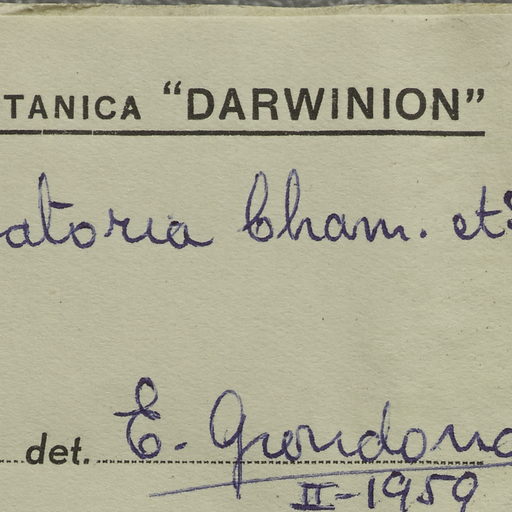 TANICA “DARWINION”
atoria Cham. et
det. E. Grondona
II-1959